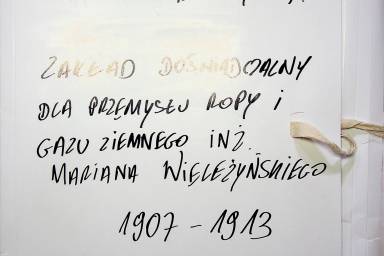 ZAKŁAD DOŚWIADCZALNY
DLA PRZEMYSŁU ROPY i
GAZU ZIEMNEGO INŻ.
MARIANA WIĘLEŻYŃSKIEGO
1907 - 1913